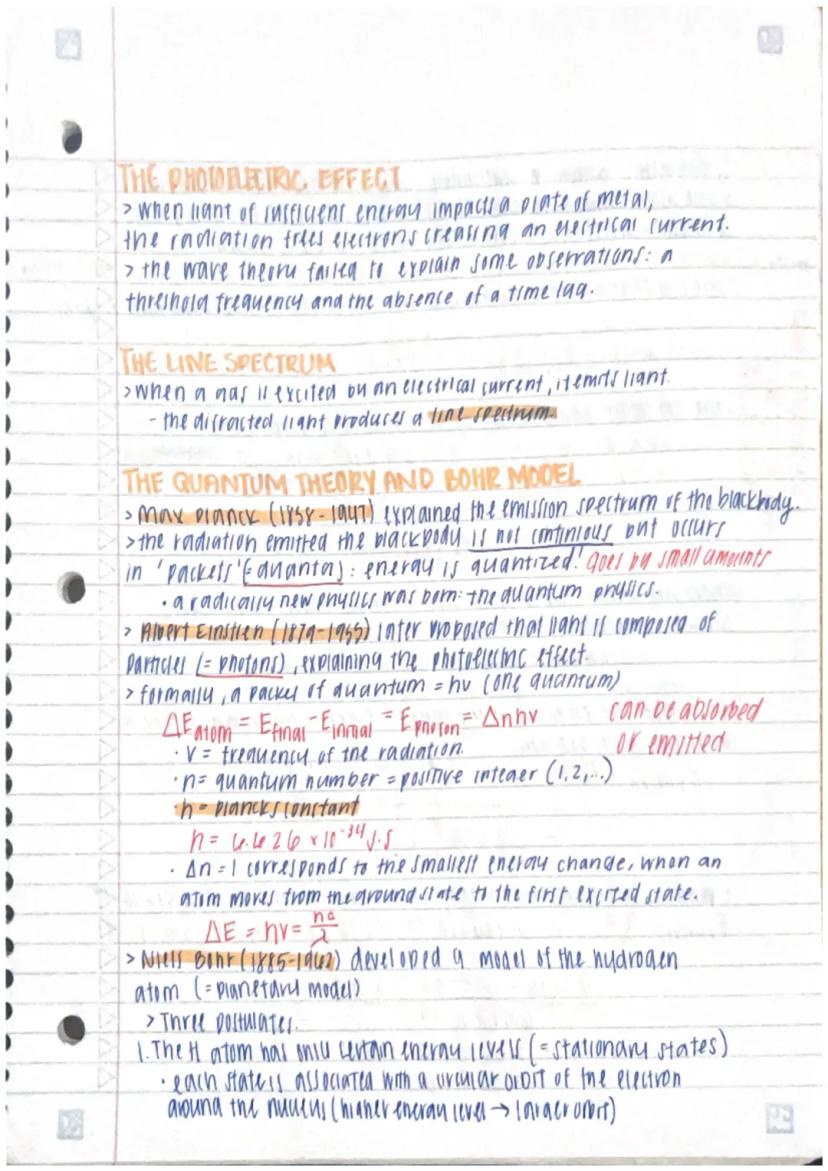 THE PHOTOELECTRIC EFFECT
> When light of sufficient energy impacts a plate of metal,
the radiation frees electrons creating an electrical current.
> the wave theory failed to explain some observations: a
threshold frequency and the absence of a time lag.
THE LINE SPECTRUM
> When a gas is excited by an electrical current, it emits light.
- the difracted light produces a line spectrum.
THE QUANTUM THEORY AND BOHR MODEL
> Max Planck (1858-1947) explained the emission spectrum of the blackbody.
> the radiation emitted the blackbody is not continious but occurs
in 'packets' (= quanta): energy is quantized! goes by small amounts
· a radically new physics was born: the quantum physics.
> Albert Einstien (1879-1955) later proposed that light is composed of
particles (= photons), explaining the photoelectric effect.
> formally, a packet of quantum = hν (one quantum)
ΔEatom = Efinal - Einitial = Ephoton = Δnhν can be absorbed
or emitted
· ν = frequency of the radiation.
· n = quantum number = positive integer (1,2,...)
h = plancks constant
h = 6.626 × 10⁻³⁴ J·s
· Δn = 1 corresponds to the smallest energy change, when an
atom moves from the ground state to the first excited state.
ΔE = hν = hc/λ
> Niels Bohr (1885-1962) developed a model of the hydrogen
atom (= planetary model)
> Three postulates.
1. The H atom has only certain energy levels (= stationary states)
· each state is associated with a circular orbit of the electron
around the nucleus (higher energy level → larger orbit)